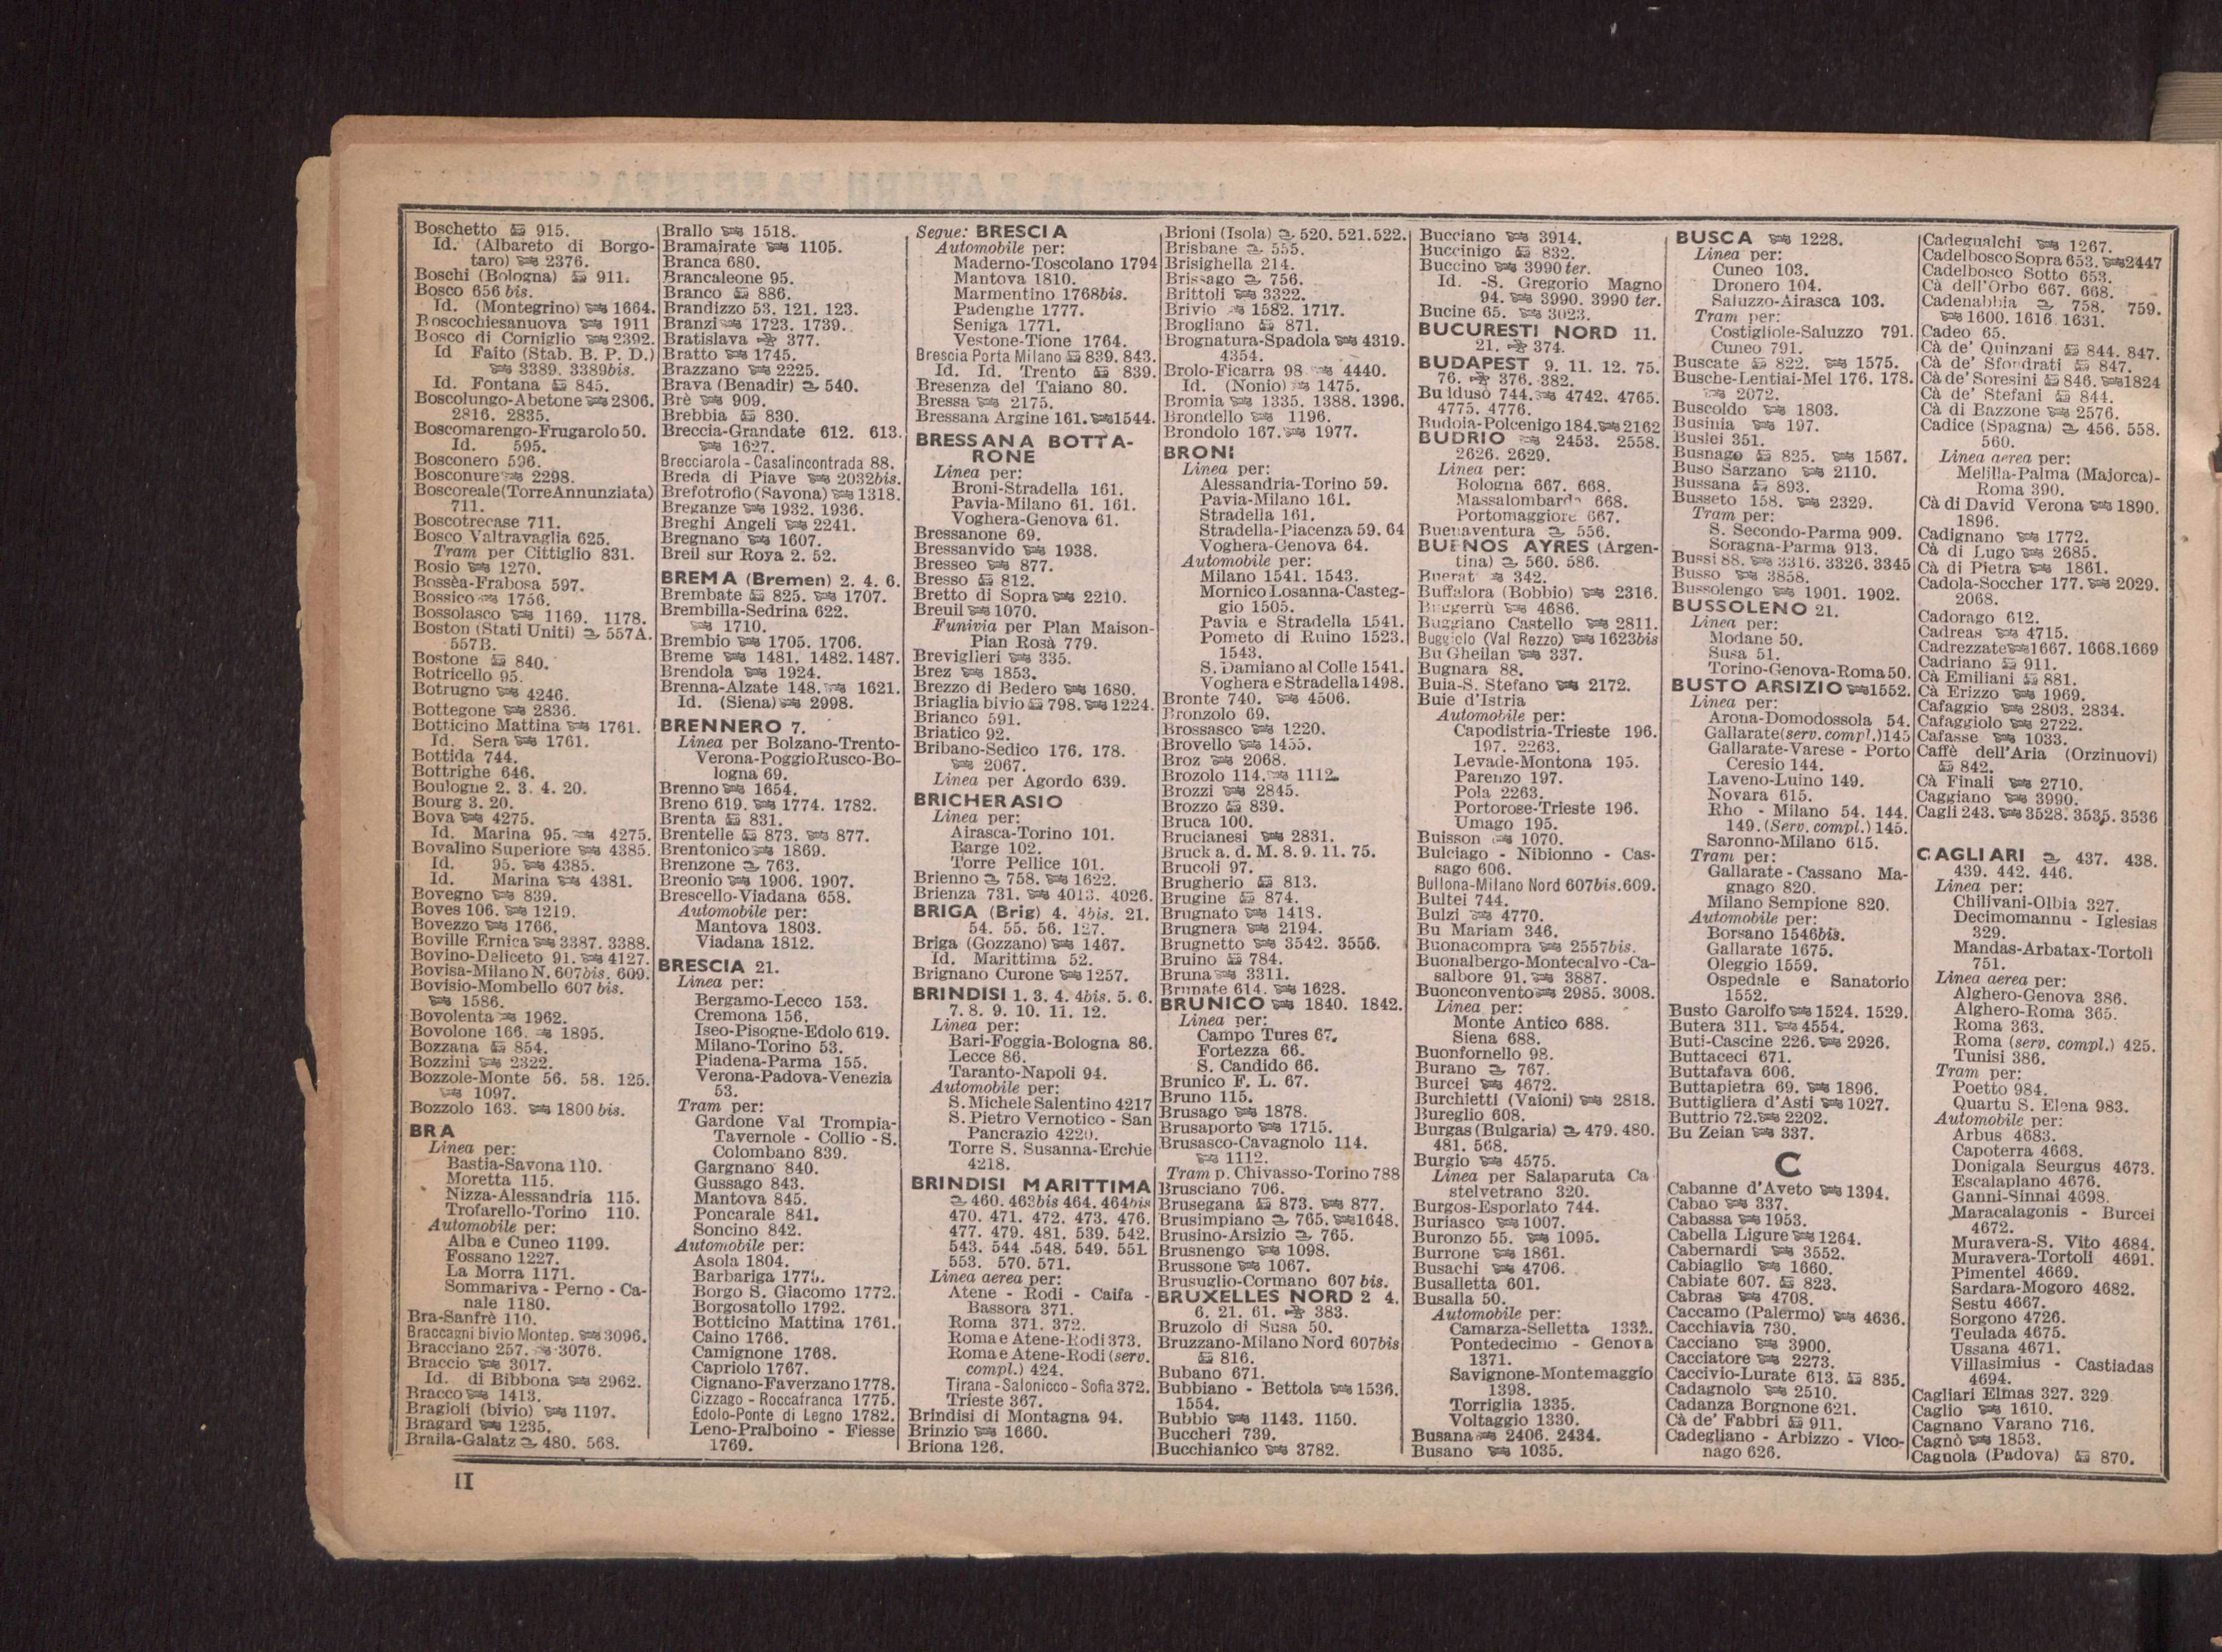 Boschetto 915.
Id. (Albareto di Borgo-
taro) 2376.
Boschi (Bologna) 911.
Bosco 656 bis.
Id. (Montegrino) 1664.
Boscochiesanuova 1911
Bosco di Corniglio 2392.
Id Faito (Stab. B. P. D.)
3389. 3389bis.
Id. Fontana 845.
Boscolungo-Abetone 2806.
2816. 2835.
Boscomarengo-Frugarolo 50.
Id. 595.
Bosconero 596.
Bosconure 2298.
Boscoreale (Torre Annunziata)
711.
Boscotrecase 711.
Bosco Valtravaglia 625.
Tram per Cittiglio 831.
Bosio 1270.
Bossèa-Frabosa 597.
Bossico 1756.
Bossolasco 1169. 1178.
Boston (Stati Uniti) 557A.
557B.
Bostone 840.
Botricello 95.
Botrugno 4246.
Bottegone 2836.
Botticino Mattina 1761.
Id. Sera 1761.
Bottida 744.
Bottrighe 646.
Boulogne 2. 3. 4. 20.
Bourg 3. 20.
Bova 4275.
Id. Marina 95. 4275.
Bovalino Superiore 4385.
Id. 95. 4385.
Id. Marina 4381.
Bovegno 839.
Boves 106. 1219.
Bovezzo 1766.
Boville Ernica 3387. 3388.
Bovino-Deliceto 91. 4127.
Bovisa-Milano N. 607bis. 609.
Bovisio-Mombello 607 bis.
1586.
Bovolenta 1962.
Bovolone 166. 1895.
Bozzana 854.
Bozzini 2322.
Bozzole-Monte 56. 58. 125.
1097.
Bozzolo 163. 1800 bis.
BRA
Linea per:
Bastia-Savona 110.
Moretta 115.
Nizza-Alessandria 115.
Trofarello-Torino 110.
Automobile per:
Alba e Cuneo 1199.
Fossano 1227.
La Morra 1171.
Sommariva - Perno - Ca-
nale 1180.
Bra-Sanfrè 110.
Braccagni bivio Montep. 3096.
Bracciano 257. 3076.
Braccio 3017.
Id. di Bibbona 2962.
Bracco 1413.
Bragioli (bivio) 1197.
Bragard 1235.
Braila-Galatz 480. 568.
Brallo 1518.
Bramairate 1105.
Branca 680.
Brancaleone 95.
Branco 886.
Brandizzo 53. 121. 123.
Branzi 1723. 1739.
Bratislava 377.
Bratto 1745.
Brazzano 2225.
Brava (Benadir) 540.
Brè 909.
Brebbia 830.
Breccia-Grandate 612. 613.
1627.
Brecciarola - Casalincontrada 88.
Breda di Piave 2032bis.
Brefotrofio (Savona) 1318.
Breganze 1932. 1936.
Breghi Angeli 2241.
Bregnano 1607.
Breil sur Roya 2. 52.
BREMA (Bremen) 2. 4. 6.
Brembate 825. 1707.
Brembilla-Sedrina 622.
1710.
Brembio 1705. 1706.
Breme 1481. 1482. 1487.
Brendola 1924.
Brenna-Alzate 148. 1621.
Id. (Siena) 2998.
BRENNERO 7.
Linea per Bolzano-Trento-
Verona-Poggio Rusco-Bo-
logna 69.
Brenno 1654.
Breno 619. 1774. 1782.
Brenta 831.
Brentelle 873. 877.
Brentonico 1869.
Brenzone 763.
Breonio 1906. 1907.
Brescello-Viadana 658.
Automobile per:
Mantova 1803.
Viadana 1812.
BRESCIA 21.
Linea per:
Bergamo-Lecco 153.
Cremona 156.
Iseo-Pisogne-Edolo 619.
Milano-Torino 53.
Piadena-Parma 155.
Verona-Padova-Venezia
53.
Tram per:
Gardone Val Trompia-
Tavernole - Collio - S.
Colombano 839.
Gargnano 840.
Gussago 843.
Mantova 845.
Poncarale 841.
Soncino 842.
Automobile per:
Asola 1804.
Barbariga 1775.
Borgo S. Giacomo 1772.
Borgosatollo 1792.
Botticino Mattina 1761.
Caino 1766.
Camignone 1768.
Capriolo 1767.
Cignano-Faverzano 1778.
Cizzago - Roccafranca 1775.
Edolo-Ponte di Legno 1782.
Leno-Pralboino - Fiesse
1769.
Segue: BRESCIA
Automobile per:
Maderno-Toscolano 1794
Mantova 1810.
Marmentino 1768bis.
Padenghe 1777.
Seniga 1771.
Vestone-Tione 1764.
Brescia Porta Milano 839. 843.
Id. Id. Trento 839.
Bresenza del Taiano 80.
Bressa 2175.
Bressana Argine 161. 1544.
BRESSANA BOTTA-
RONE
Linea per:
Broni-Stradella 161.
Pavia-Milano 61. 161.
Voghera-Genova 61.
Bressanone 69.
Bressanvido 1938.
Bresseo 877.
Bresso 812.
Bretto di Sopra 2210.
Breuil 1070.
Funivia per Plan Maison-
Plan Rosà 779.
Breviglieri 335.
Brez 1853.
Brezzo di Bedero 1680.
Briaglia bivio 798. 1224.
Brianco 591.
Briatico 92.
Bribano-Sedico 176. 178.
2067.
Linea per Agordo 639.
BRICHERASIO
Linea per:
Airasca-Torino 101.
Barge 102.
Torre Pellice 101.
Brienno 758. 1622.
Brienza 731. 4013. 4026.
BRIGA (Brig) 4. 4bis. 21.
54. 55. 56. 127.
Briga (Gozzano) 1467.
Id. Marittima 52.
Brignano Curone 1257.
BRINDISI 1. 3. 4. 4bis. 5. 6.
7. 8. 9. 10. 11. 12.
Linea per:
Bari-Foggia-Bologna 86.
Lecce 86.
Taranto-Napoli 94.
Automobile per:
S. Michele Salentino 4217
S. Pietro Vernotico - San
Pancrazio 4220.
Torre S. Susanna-Erchie
4218.
BRINDISI MARITTIMA
460. 463bis 464. 464bis
470. 471. 472. 473. 476.
477. 479. 481. 539. 542.
543. 544 .548. 549. 551
553. 570. 571.
Linea aerea per:
Atene - Rodi - Caifa -
Bassora 371.
Roma 371. 372.
Roma e Atene-Rodi 373.
Roma e Atene-Rodi (serv.
compl.) 424.
Tirana - Salonicco - Sofia 372.
Trieste 367.
Brindisi di Montagna 94.
Brinzio 1660.
Briona 126.
Brioni (Isola) 520. 521. 522.
Brisbane 555.
Brisighella 214.
Brissago 756.
Brittoli 3322.
Brivio 1582. 1717.
Brogliano 871.
Brognatura-Spadola 4319.
4354.
Brolo-Ficarra 98 4440.
Id. (Nonio) 1475.
Bromia 1335. 1388. 1396.
Brondello 1196.
Brondolo 167. 1977.
BRONI
Linea per:
Alessandria-Torino 59.
Pavia-Milano 161.
Stradella 161.
Stradella-Piacenza 59. 64
Voghera-Genova 64.
Automobile per:
Milano 1541. 1543.
Mornico Losanna-Casteg-
gio 1505.
Pavia e Stradella 1541.
Pometo di Ruino 1523.
1543.
S. Damiano al Colle 1541.
Voghera e Stradella 1498.
Bronte 740. 4506.
Bronzolo 69.
Brossasco 1220.
Brovello 1455.
Broz 2068.
Brozolo 114. 1112.
Brozzi 2845.
Brozzo 839.
Bruca 100.
Brucianesi 2831.
Bruck a. d. M. 8. 9. 11. 75.
Brucoli 97.
Brugherio 813.
Brugine 874.
Brugnato 1418.
Brugnera 2194.
Brugnetto 3542. 3556.
Bruino 784.
Bruna 3311.
Brunate 614. 1628.
BRUNICO 1840. 1842.
Linea per:
Campo Tures 67.
Fortezza 66.
S. Candido 66.
Brunico F. L. 67.
Bruno 115.
Brusago 1878.
Brusaporto 1715.
Brusasco-Cavagnolo 114.
1112.
Tram p. Chivasso-Torino 788
Brusciano 706.
Brusegana 873. 877.
Brusimpiano 765. 1648.
Brusino-Arsizio 765.
Brusnengo 1098.
Brussone 1067.
Brusuglio-Cormano 607 bis.
BRUXELLES NORD 2 4.
6. 21. 61. 383.
Bruzolo di Susa 50.
Bruzzano-Milano Nord 607bis
816.
Bubano 671.
Bubbiano - Bettola 1536.
1554.
Bubbio 1143. 1150.
Buccheri 739.
Bucchianico 3782.
Bucciano 3914.
Buccinigo 832.
Buccino 3990 ter.
Id. -S. Gregorio Magno
94. 3990. 3990 ter.
Bucine 65. 3023.
BUCURESTI NORD 11.
21. 374.
BUDAPEST 9. 11. 12. 75.
76. 376. 382.
Bu iduso 744. 4742. 4765.
4775. 4776.
Budoia-Polcenigo 184. 2162
BUDRIO 2453. 2558.
2626. 2629.
Linea per:
Bologna 667. 668.
Massalombarda 668.
Portomaggiore 667.
Buenaventura 556.
BUENOS AYRES (Argen-
tina) 560. 586.
Buerat 342.
Buffalora (Bobbio) 2316.
Buggerrù 4686.
Buggiano Castello 2811.
Buggiolo (Val Rezzo) 1623bis
Bu Gheilan 337.
Bugnara 88.
Buia-S. Stefano 2172.
Buie d'Istria
Automobile per:
Capodistria-Trieste 196.
197. 2263.
Levade-Montona 195.
Parenzo 197.
Pola 2263.
Portorose-Trieste 196.
Umago 195.
Buisson 1070.
Bulciago - Nibionno - Cas-
sago 606.
Bullona-Milano Nord 607bis. 609.
Bultei 744.
Bulzi 4770.
Bu Mariam 346.
Buonacompra 2557bis.
Buonalbergo-Montecalvo - Ca-
salbore 91. 3887.
Buonconvento 2985. 3008.
Linea per:
Monte Antico 688.
Siena 688.
Buonfornello 98.
Burano 767.
Burcei 4672.
Burchietti (Vaioni) 2818.
Bureglio 608.
Burgas (Bulgaria) 479. 480.
481. 568.
Burgio 4575.
Linea per Salaparuta Ca
stelvetrano 320.
Burgos-Esporlato 744.
Buriasco 1007.
Buronzo 55. 1095.
Burrone 1861.
Busachi 4706.
Busalletta 601.
Busalla 50.
Automobile per:
Camarza-Selletta 1332.
Pontedecimo - Genova
1371.
Savignone-Montemaggio
1398.
Torriglia 1335.
Voltaggio 1330.
Busana 2406. 2434.
Busano 1035.
BUSCA 1228.
Linea per:
Cuneo 103.
Dronero 104.
Saluzzo-Airasca 103.
Tram per:
Costigliole-Saluzzo 791.
Cuneo 791.
Buscate 822. 1575.
Busche-Lentiai-Mel 176. 178.
2072.
Buscoldo 1803.
Businia 197.
Buslei 351.
Busnago 825. 1567.
Buso Sarzano 2110.
Bussana 893.
Busseto 158. 2329.
Tram per:
S. Secondo-Parma 909.
Soragna-Parma 913.
Bussi 88. 3316. 3326. 3345
Busso 3858.
Bussolengo 1901. 1902.
BUSSOLENO 21.
Linea per:
Modane 50.
Susa 51.
Torino-Genova-Roma 50.
BUSTO ARSIZIO 1552.
Linea per:
Arona-Domodossola 54.
Gallarate (serv. compl.) 145
Gallarate-Varese - Porto
Ceresio 144.
Laveno-Luino 149.
Novara 615.
Rho - Milano 54. 144.
149. (Serv. compl.) 145.
Saronno-Milano 615.
Tram per:
Gallarate - Cassano Ma-
gnago 820.
Milano Sempione 820.
Automobile per:
Borsano 1546bis.
Gallarate 1675.
Oleggio 1559.
Ospedale e Sanatorio
1552.
Busto Garolfo 1524. 1529.
Butera 311. 4554.
Buti-Cascine 226. 2926.
Buttaceci 671.
Buttafava 606.
Buttapietra 69. 1896.
Buttigliera d'Asti 1027.
Buttrio 72. 2202.
Bu Zeian 337.
C
Cabanne d'Aveto 1394.
Cabao 337.
Cabassa 1953.
Cabella Ligure 1264.
Cabernardi 3552.
Cabiaglio 1660.
Cabiate 607. 823.
Cabras 4708.
Caccamo (Palermo) 4636.
Cacchiavia 730.
Cacciano 3900.
Cacciatore 2273.
Caccivio-Lurate 613. 835.
Cadagnolo 2510.
Cadanza Borgnone 621.
Cà de' Fabbri 911.
Cadegliano - Arbizzo - Vico-
nago 626.
Cadegualchi 1267.
Cadelbosco Sopra 653. 2447
Cadelbosco Sotto 653.
Cà dell'Orbo 667. 668.
Cadenabbia 758. 759.
1600. 1616. 1631.
Cadeo 65.
Cà de' Quinzani 844. 847.
Cà de' Sfondrati 847.
Cà de' Soresini 846. 1824
Cà de' Stefani 844.
Cà di Bazzone 2576.
Cadice (Spagna) 456. 558.
560.
Linea aerea per:
Melilla-Palma (Majorca)-
Roma 390.
Cà di David Verona 1890.
1896.
Cadignano 1772.
Cà di Lugo 2685.
Cà di Pietra 1861.
Cadola-Soccher 177. 2029.
2068.
Cadorago 612.
Cadreas 4715.
Cadrezzate 1667. 1668. 1669
Cadriano 911.
Cà Emiliani 881.
Cà Erizzo 1969.
Cafaggio 2803. 2834.
Cafaggiolo 2722.
Cafasse 1033.
Caffè dell'Aria (Orzinuovi)
842.
Cà Finali 2710.
Caggiano 3990.
Cagli 243. 3528. 3535. 3536
CAGLIARI 437. 438.
439. 442. 446.
Linea per:
Chilivani-Olbia 327.
Decimomannu - Iglesias
329.
Mandas-Arbatax-Tortoli
751.
Linea aerea per:
Alghero-Genova 386.
Alghero-Roma 365.
Roma 363.
Roma (serv. compl.) 425.
Tunisi 386.
Tram per:
Poetto 984.
Quartu S. Elena 983.
Automobile per:
Arbus 4683.
Capoterra 4668.
Donigala Seurgus 4673.
Escalaplano 4676.
Ganni-Sinnai 4698.
Maracalagonis - Burcei
4672.
Muravera-S. Vito 4684.
Muravera-Tortoli 4691.
Pimentel 4669.
Sardara-Mogoro 4682.
Sestu 4667.
Sorgono 4726.
Teulada 4675.
Ussana 4671.
Villasimius - Castiadas
4694.
Cagliari Elmas 327. 329
Caglio 1610.
Cagnano Varano 716.
Cagnò 1853.
Cagnola (Padova) 870.
II